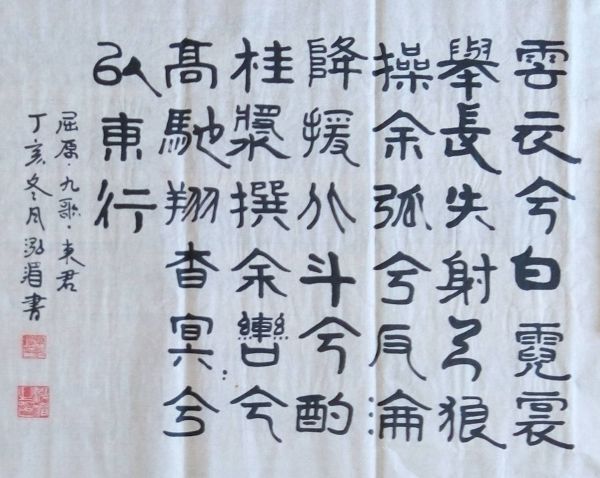 雲衣兮白霓裳
舉長矢射天狼
操余弧兮反淪
降援北斗兮酌
桂漿撰余轡兮
高馳翔杳冥兮
以東行
屈原·九歌·東君
丁亥冬月眉書